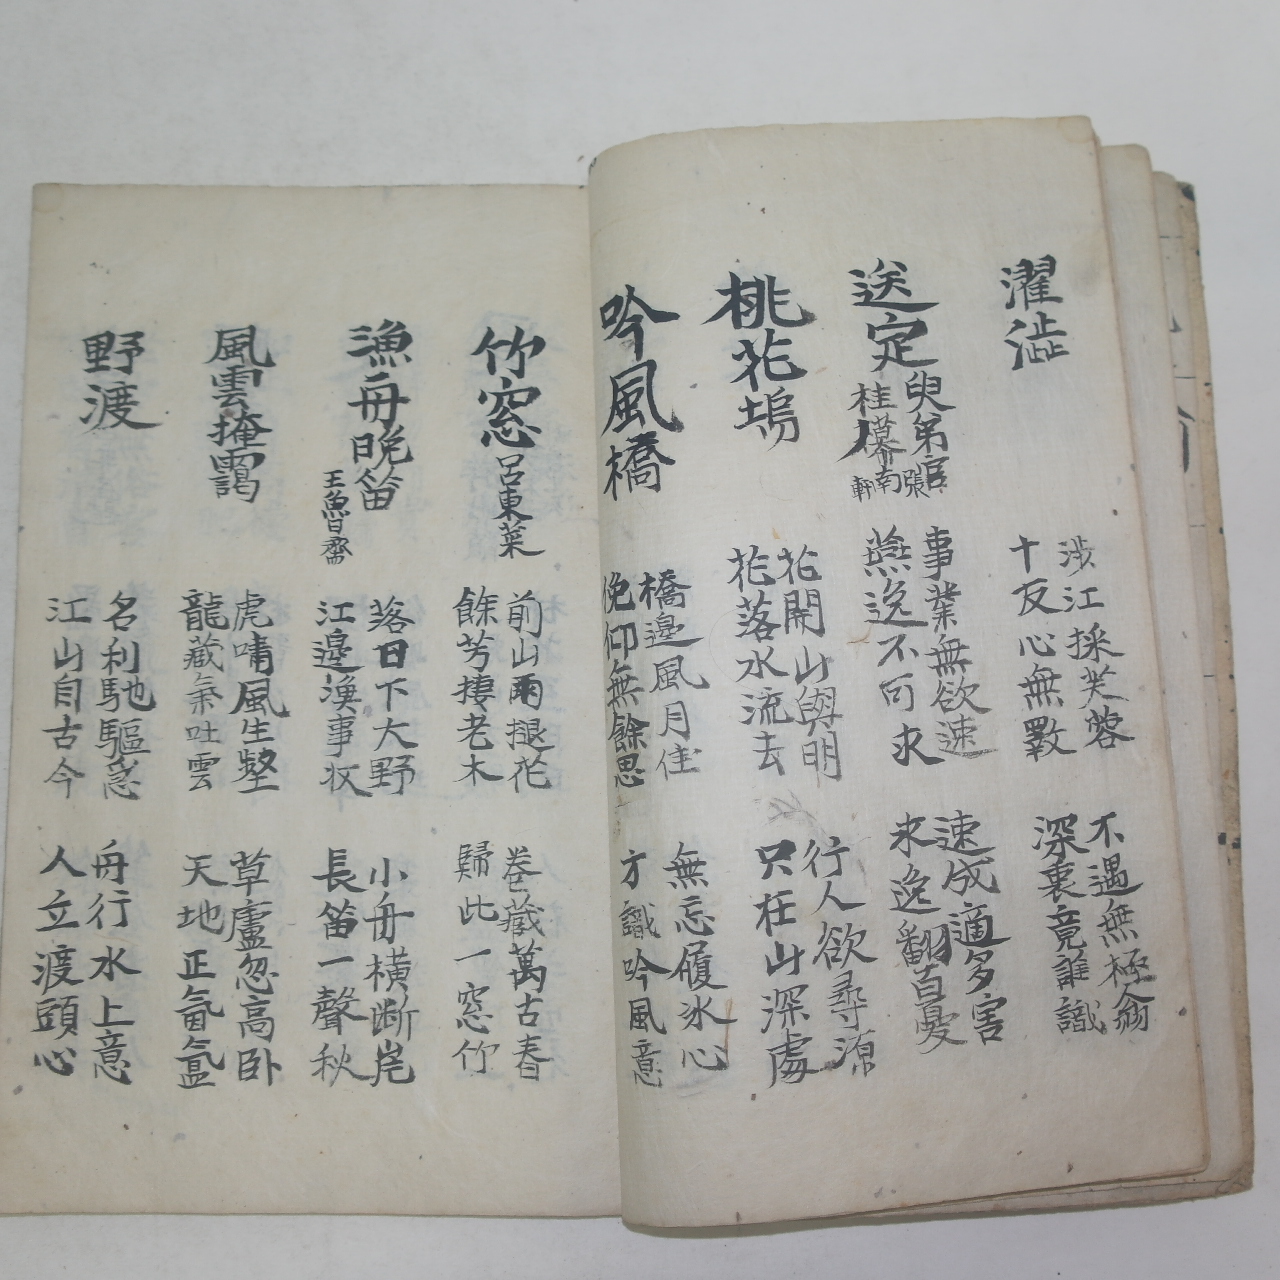 濯澁
涉江採芙蓉
十反心無斁
不遇無極翁
深裏竟誰識
送定
叟弟官
桂幕
張南軒
事業無欲速
燕逸不可求
速成適多害
求逸翻百憂
桃花塢
花開山與明
花落水流去
行人欲尋源
只在山深處
吟風橋
橋邊風月佳
俛仰無餘思
無忘履氷心
方識吟風意
竹窓
呂東菜
前山雨褪花
餘芳棲老木
卷藏萬古春
歸此一窓竹
漁舟晚笛
王魯齋
落日下大野
江邊漁事收
小舟橫斷岸
長笛一聲秋
風雲掩靄
虎嘯風生壑
龍藏氣吐雲
草廬忽高卧
天地正氤氳
野渡
名利馳驅急
江山自古今
舟行水上意
人立渡頭心